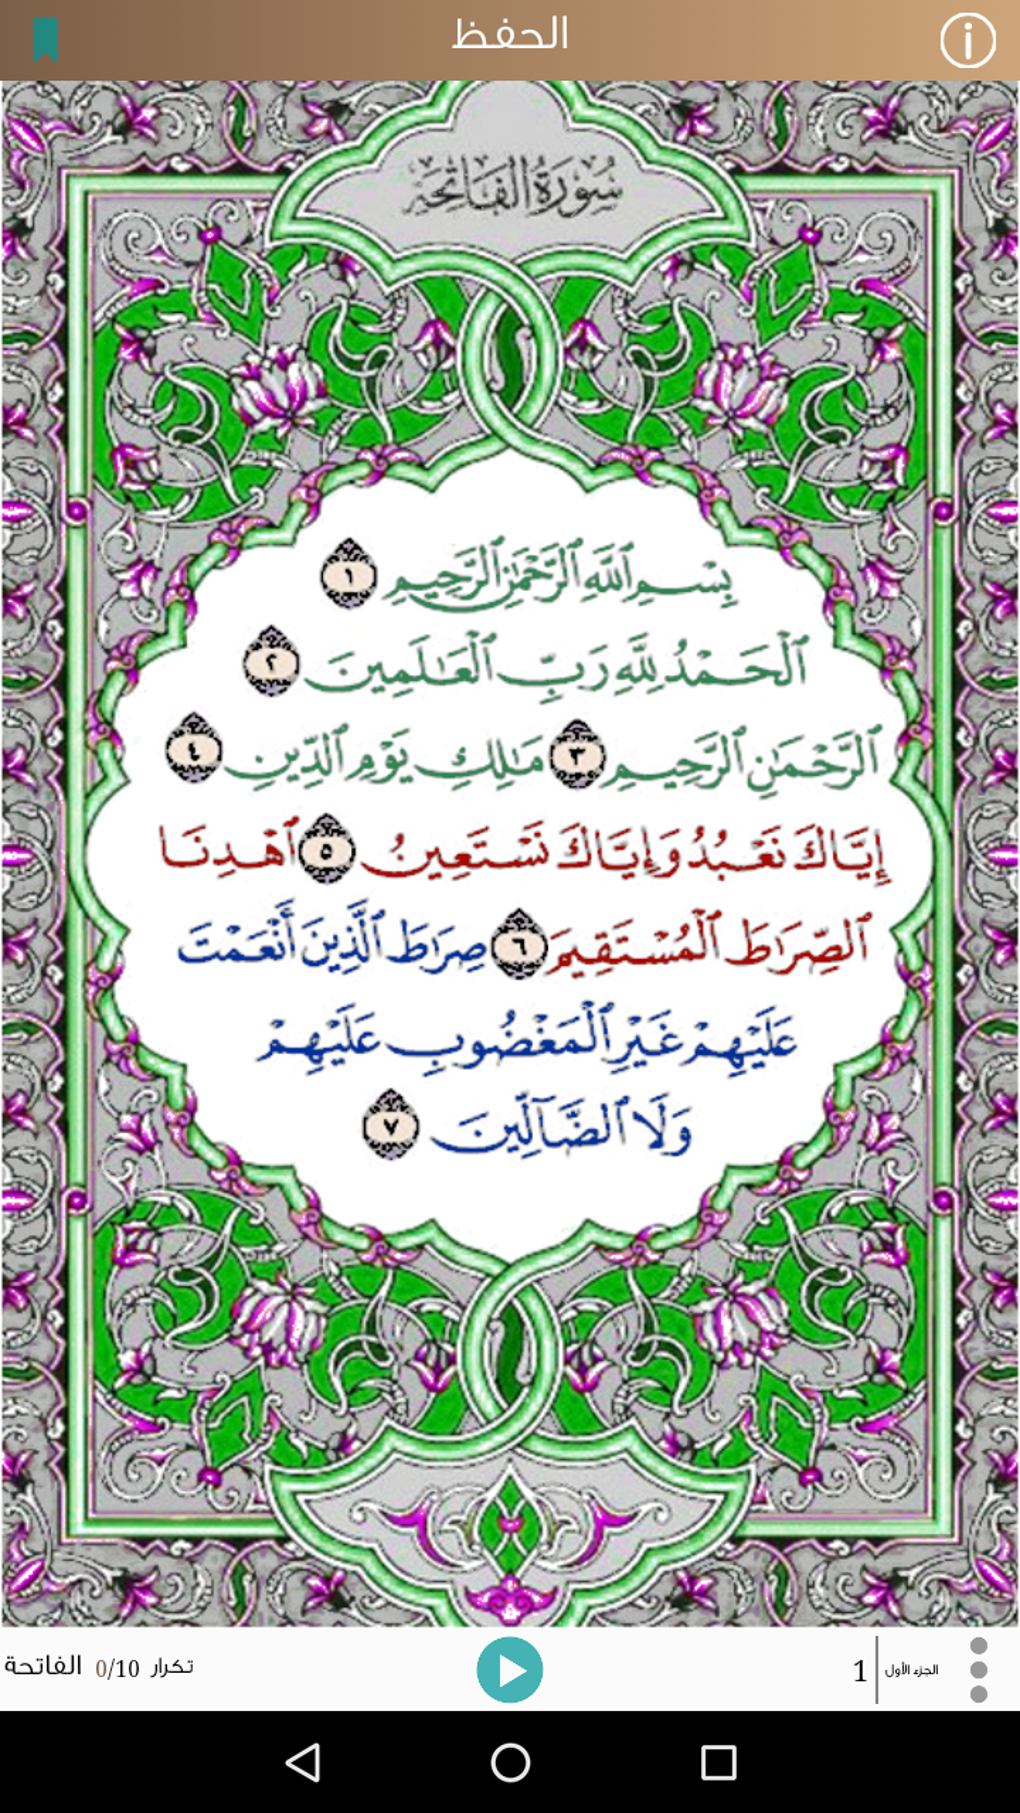 الحفظ
سُورَةُ الفَاتِحَةِ
بِسْمِ ٱللَّهِ ٱلرَّحْمَٰنِ ٱلرَّحِيمِ ١
ٱلْحَمْدُ لِلَّهِ رَبِّ ٱلْعَٰلَمِينَ ٢
ٱلرَّحْمَٰنِ ٱلرَّحِيمِ ٣ مَٰلِكِ يَوْمِ ٱلدِّينِ ٤
إِيَّاكَ نَعْبُدُ وَإِيَّاكَ نَسْتَعِينُ ٥ ٱهْدِنَا
ٱلصِّرَٰطَ ٱلْمُسْتَقِيمَ ٦ صِرَٰطَ ٱلَّذِينَ أَنْعَمْتَ
عَلَيْهِمْ غَيْرِ ٱلْمَغْضُوبِ عَلَيْهِمْ
وَلَا ٱلضَّآلِّينَ ٧
الجزء الأول 1
تكرار 0/10 الفاتحة